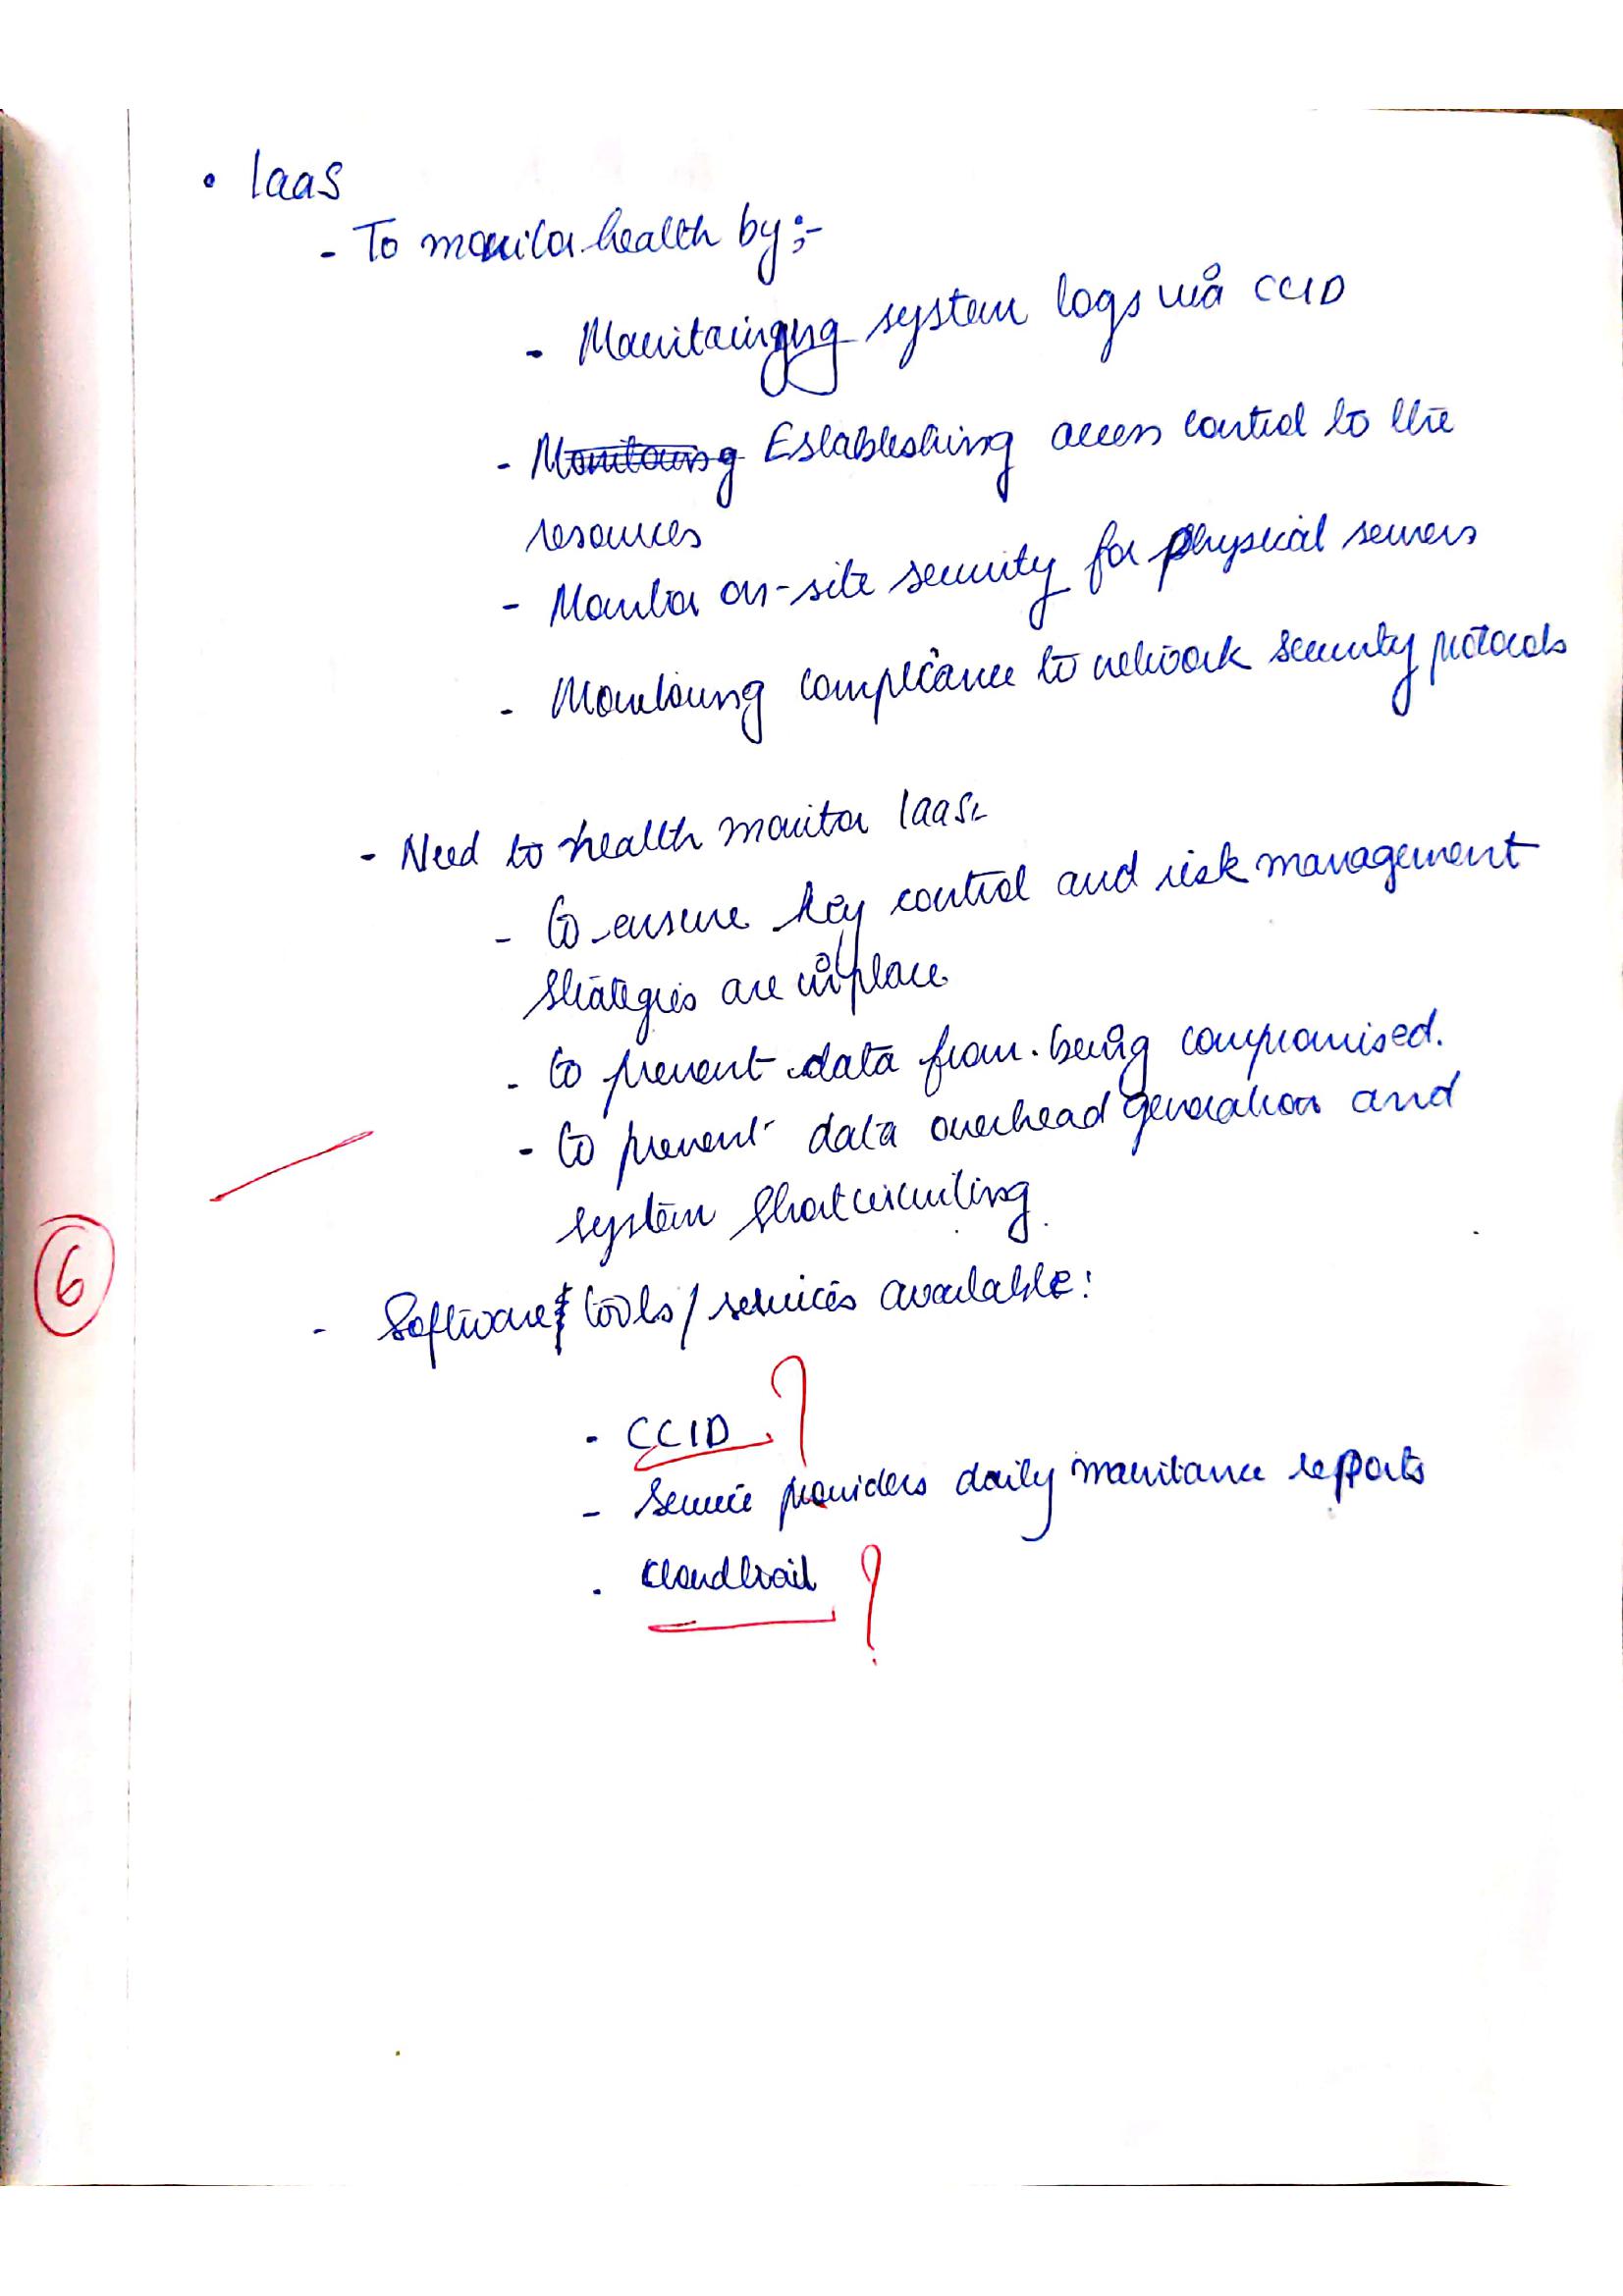 • IaaS
- To monitor health by:-
- Maintaining system logs via CCID
- Monitoring Establishing access control to the
resources
- Monitor on-site security for physical servers
- Monitoring compliance to network security protocols
- Need to health monitor IaaS:-
- to ensure key control and risk management
strategies are in place
- to prevent data from being compromised.
- to prevent data overhead generation and
system shortcircuiting.
6
- Software tools/services available:
- CCID ?
- Service providers daily maintance reports
- Cloudtrail ?